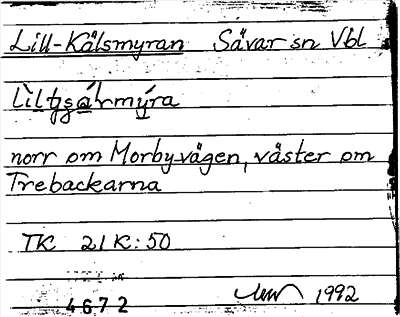 Lill-Kälsmyran Sävar sn Vbl
norr om Morby-vägen, väster om
Trebackarna
TK 21K:50
4672 1992